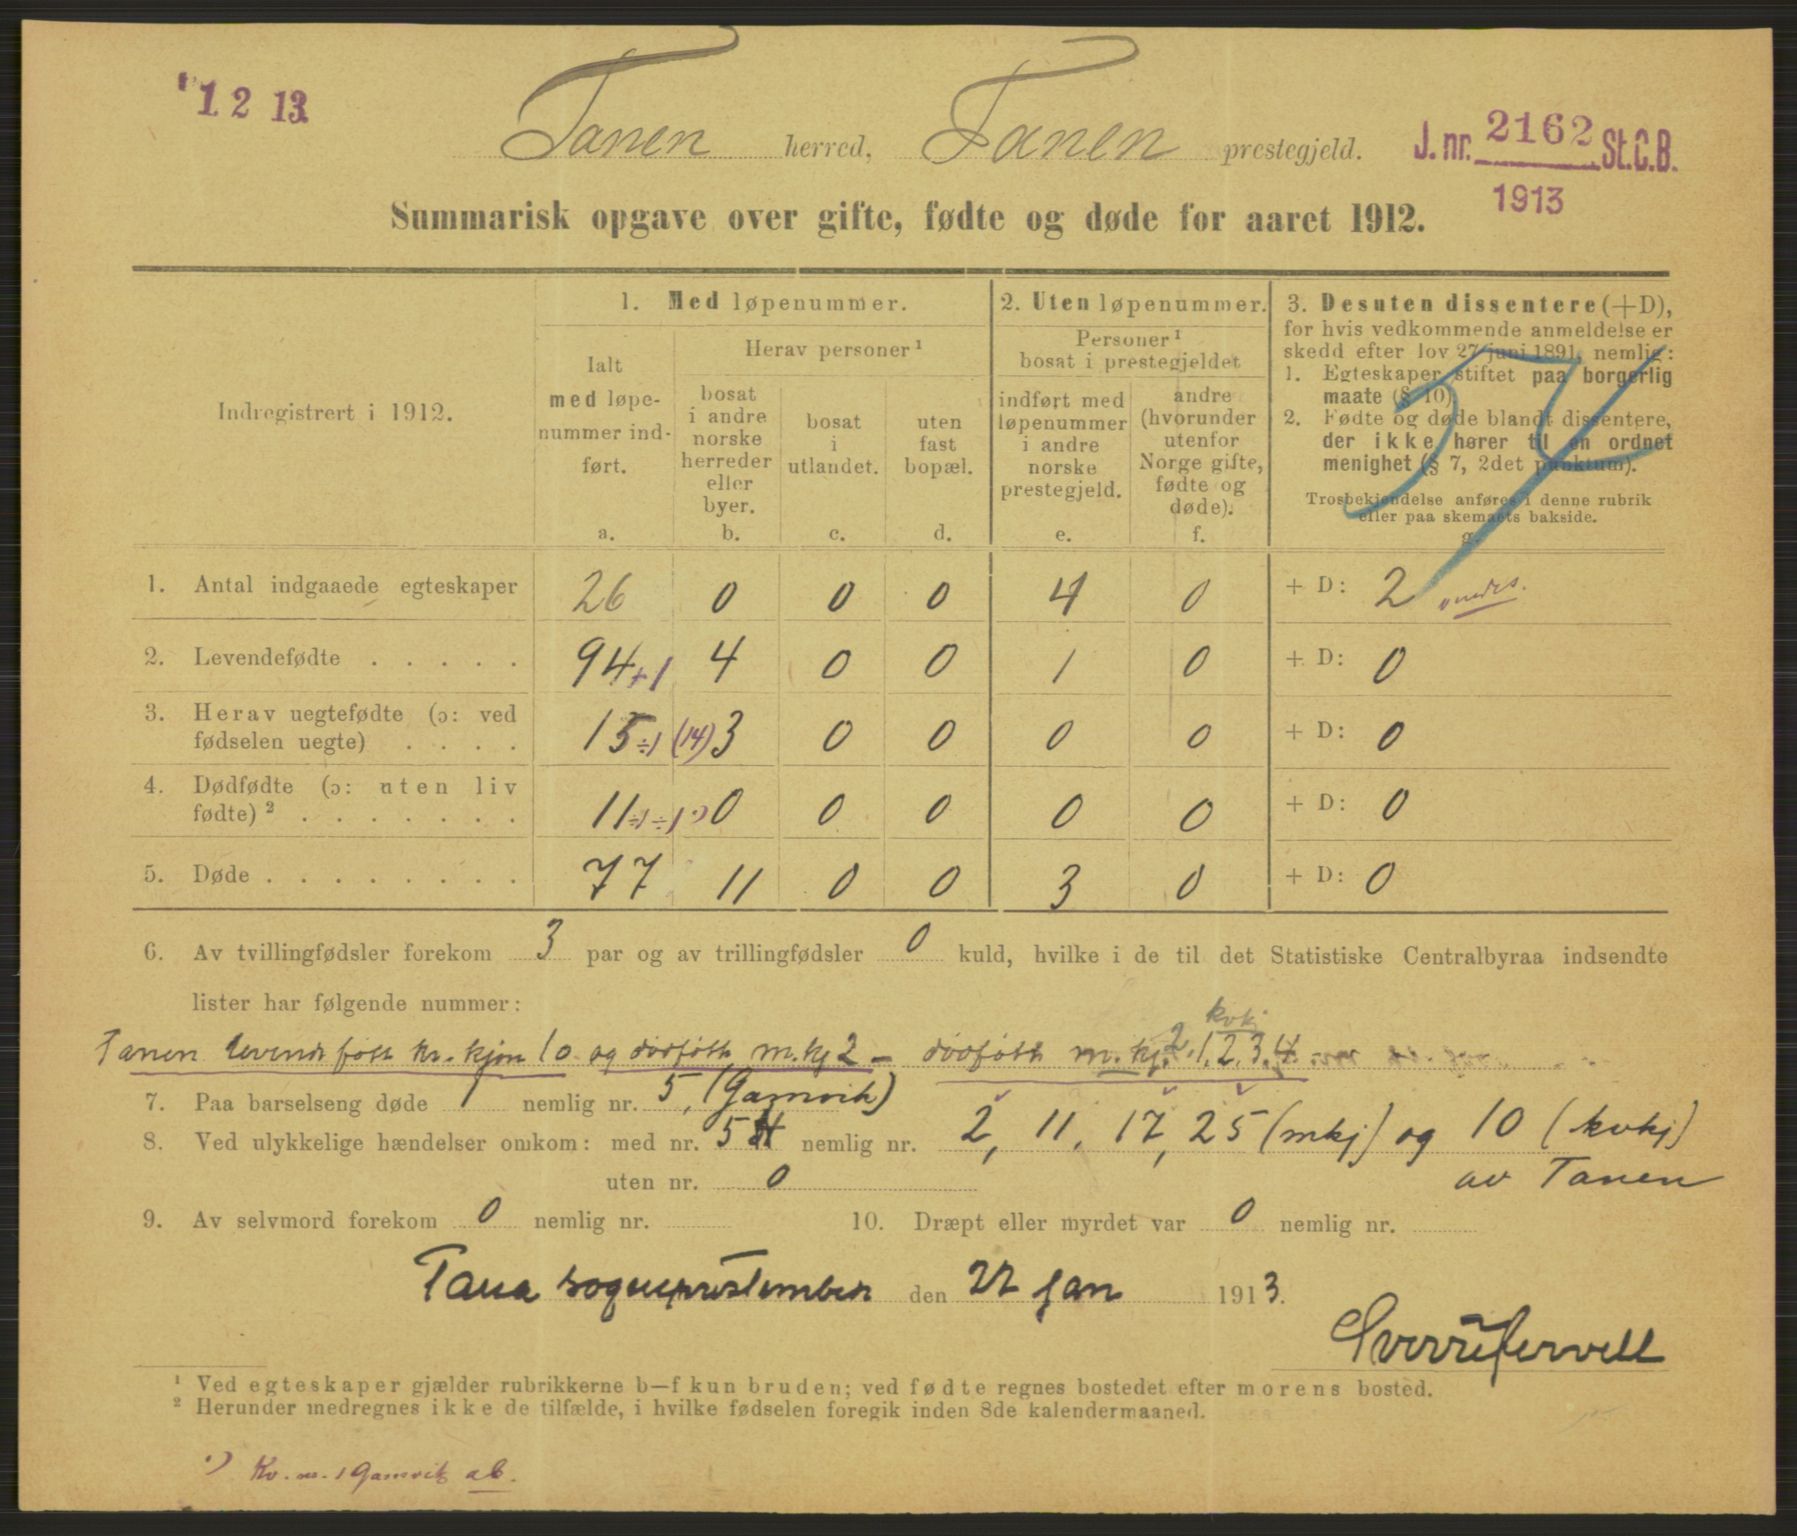 1 2 13
Tanen herred, Tanen prestegjeld.
J. nr. 2162 St.C.B.
1913
Summarisk opgave over gifte, fødte og døde for aaret 1912.
Indregistrert i 1912.
1. Med løpenummer.
Ialt med løpenummer indført.
a.
Herav personer ¹
bosat i andre norske herreder eller byer.
b.
bosat i utlandet.
c.
uten fast bopæl.
d.
2. Uten løpenummer.
Personer ¹ bosat i prestegjeldet
indført med løpenummer i andre norske prestegjeld.
e.
andre (hvorunder utenfor Norge gifte, fødte og døde).
f.
3. Desuten dissentere (+D),
for hvis vedkommende anmeldelse er
skedd efter lov 27 juni 1891, nemlig:
1. Egteskaper stiftet paa borgerlig
maate (§ 10).
2. Fødte og døde blandt dissentere,
der ikke hører til en ordnet
menighet (§ 7, 2det punktum).
Trosbekjendelse anføres i denne rubrik
eller paa skemaets bakside.
g.
1. Antal indgaaede egteskaper 26 0 0 0 4 0 + D: 2
2. Levendefødte . . . . . 94 +1 4 0 0 1 0 + D: 0
3. Herav uegtefødte (ɔ: ved
fødselen uegte) . . . . 15 ÷1 (14) 3 0 0 0 0 + D: 0
4. Dødfødte (ɔ: uten liv
fødte) ² . . . . . . . 11 ÷1 ÷1 ¹) 0 0 0 0 0 + D: 0
5. Døde . . . . . . . . 77 11 0 0 3 0 + D: 0
6. Av tvillingfødsler forekom 3 par og av trillingfødsler 0 kuld, hvilke i de til det Statistiske Centralbyraa indsendte
lister har følgende nummer:
kvkj
Tanen levende født kv. kjøn 10 og dødfødt m.kj 2 – dødfødt m. kj. 2 1. 2. 3. 4
7. Paa barselseng døde 1 nemlig nr. 5, (Gamvik)
8. Ved ulykkelige hændelser omkom: med nr. 5 nemlig nr. 2, 11, 17, 25 (mkj) og 10 (kvkj)
av Tanen
uten nr. 0
9. Av selvmord forekom 0 nemlig nr.
10. Dræpt eller myrdet var 0 nemlig nr.
Tana sogneprestembede den 22 jan 1913.
¹ Ved egteskaper gjælder rubrikkerne b—f kun bruden; ved fødte regnes bostedet efter morens bosted.
² Herunder medregnes ikke de tilfælde, i hvilke fødselen foregik inden 8de kalendermaaned.
¹) Kv. nr. 1 Gamvik